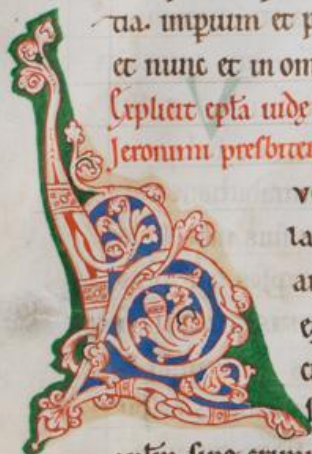 tia. imperium et p
et nunc et in om
Explicit epła iude
Jeronimi presbiter
v
la
au
ex